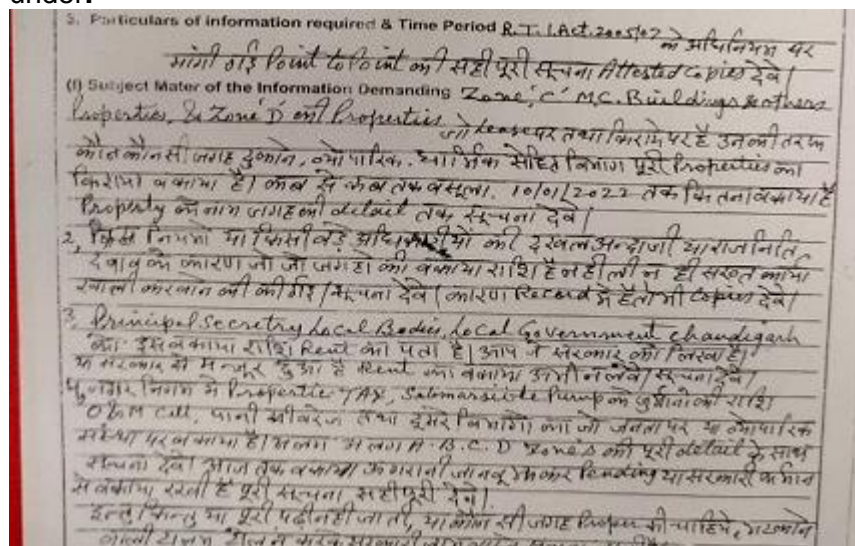 under.
5. Particulars of information required & Time Period R.T.I. Act. 2005/07 के अधिनियम पर
मांगी गई Point to Point की सही पूरी सूचना Attested Copies देवे।
(I) Subject Mater of the Information Demanding Zone 'C' M.C. Buildings & others
Properties, & Zone 'D' की Properties जो Lease पर तथा किराये पर है उनकी तरफ
कौन कौन सी जगह दुकान, व्योपारिक, धार्मिक सहित विभाग पूरी Properties का
किराया बकाया है। कब से कब तक वसूला. 10/01/2022 तक कितना बकाया है
Property के नाम जगह की detail तक सूचना देवे।
2, किस नियमों या किसी बड़े अधिकारीयों की दखलअन्दाजी या राजनिति
दबाव के कारण जो जो जगहो की बकाया राशि है नही ली न ही सख्त कार्य
खाली करवाने की की गई। सूचना देवे। कारण Record में है तो भी Copies देवे।
3, Principal Secretry Local Bodies, Local Government Chandigarh
को इस बकाया राशि Rent का पता है। आप ने सरकार को लिखा है।
या सरकार से मन्जूर हुआ है Rent का बकाया अभी न लेवे। सूचना देवे।
4, नगर निगम में Propertie TAX, Submarsible Pump के जुर्मानो की राशि
O&M Cell, पानी सीवरेज तथा दूसरे विभागो का जो जनता पर या व्योपारिक
संस्था पर बकाया है। अलग अलग A.B.C.D Zone's की पूरी detail के साथ
सूचना देवे। आज तक बकाया जानबूझकर Pending या सरकारी
से बकाया रखी है पूरी सूचना सही पूरी देवे।
किन्तु या पूरी पढी नही जाती, या कौन सी जगह Proper की चाहिये,